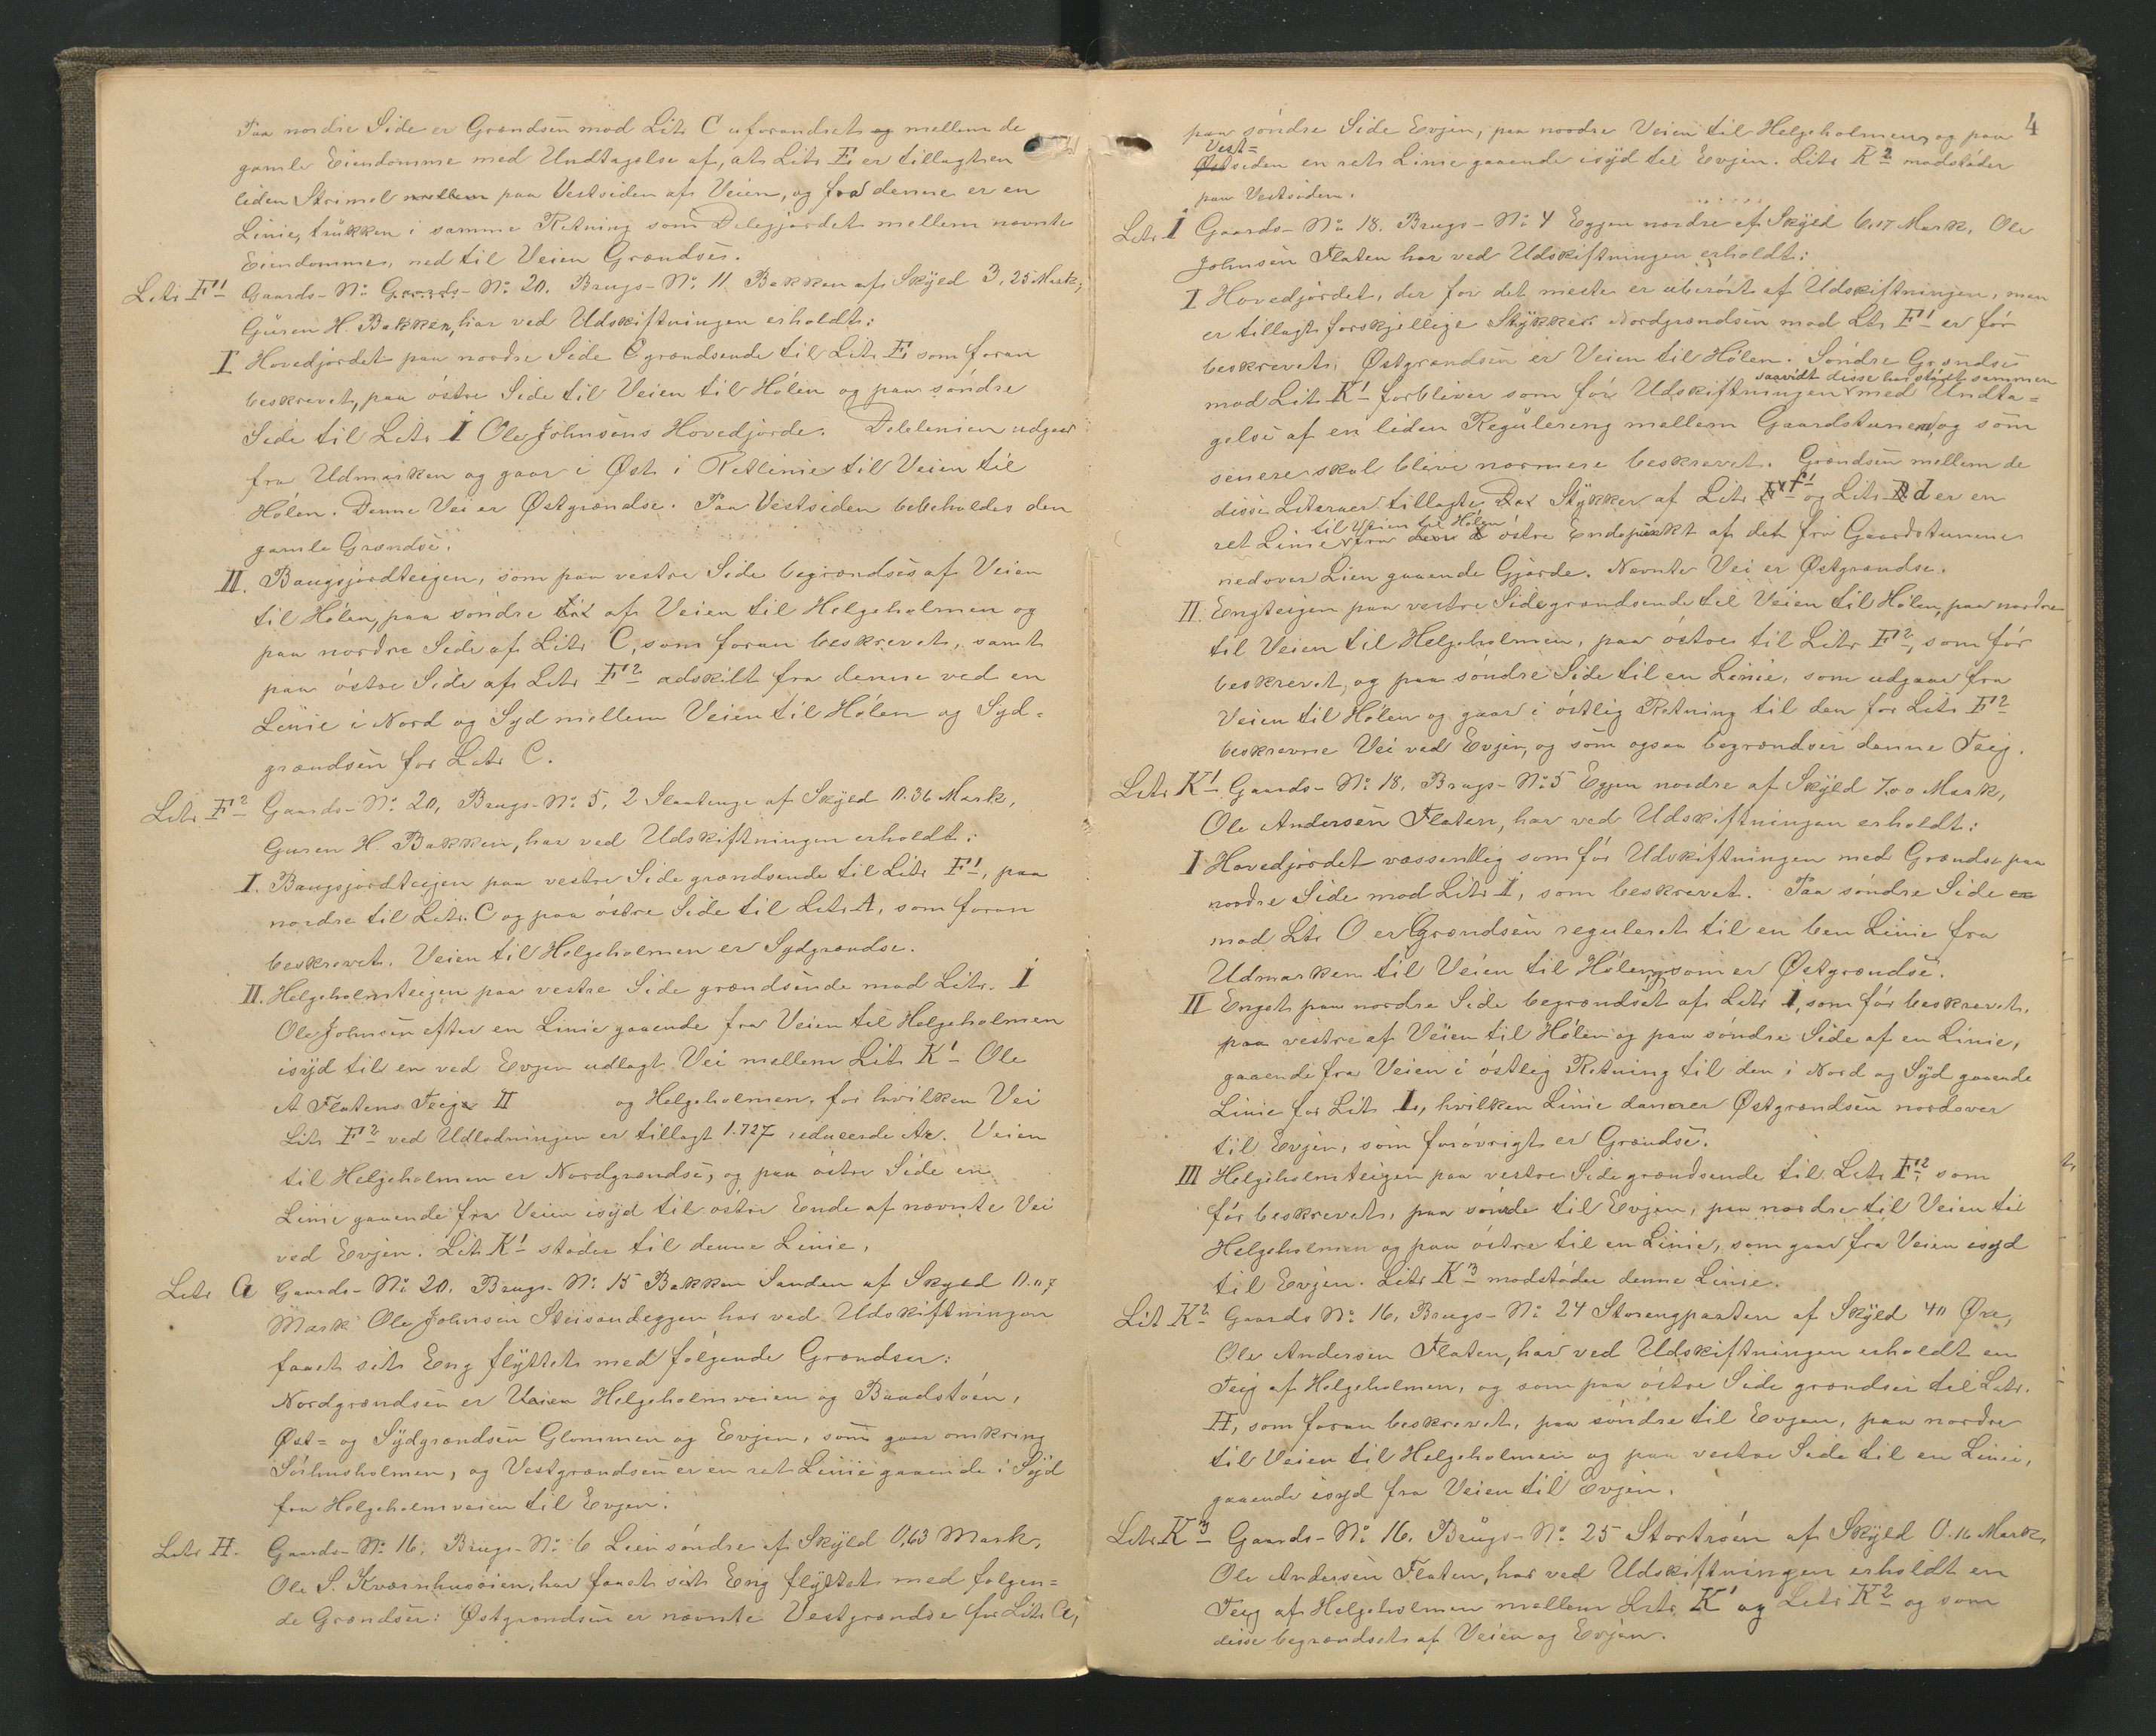 Paa nordre Side er Grændsen mod Litr C uforandret og mellem de
gamle Eiendomme med Undtagelse af, at Litr E er tillagt en
liden Strimel mellem paa Vestsiden af Veien, og fra denne er en
Linie, trukken i samme Retning som Delegjærdet mellem nævnte
Eiendomme, ned til Veien Grændse.
Litr F¹ Gaards-No Gaards-No 20. Brugs-No 11 Bakken af Skyld 3,25 Mark,
Guren H. Bakken, har ved Udskiftningen erholdt:
I Hovedjordet paa nordre Side grændsende til Litr E som foran
beskrevet, paa östre Side til Veien til Hölen og paa söndre
Side til Litr I Ole Johnsens Hovedjorde. Delelinien udgaar
fra Udmarken og gaar i Øst i Retlinie til Veien til
Hölen. Denne Vei er Østgrændse. Paa Vestsiden bebeholdes den
gamle Grændse.
II. Baugsjordteigen, som paa vestre Side begrændses af Veien
til Hölen, paa söndre til af Veien til Helgeholmen og
paa nordre Side af Litr C, som foran beskrevet, samt
paa östre Side af Litr F² adskilt fra denne ved en
Linie i Nord og Syd mellem Veien til Hölen og Syd=
grændsen for Litr C.
Litr F² Gaards-No 20, Brugs-No 5, 2 Slaatenge af Skyld 0.36 Mark,
Guren H. Bakken, har ved Udskiftningen erholdt:
I. Baugsjordteigen paa vestre Side grændsende til Litr F¹, paa
nordre til Litr. C og paa östre Side til Litr A, som foran
beskrevet. Veien til Helgeholmen er Sydgrændse.
II. Helgeholmteigen paa vestre Side grændsende mod Litr. I
Ole Johnsen efter en Linie gaaende fra Veien til Helgeholmen
isyd til en ved Evjen udlagt Vei mellem Litr K¹ Ole
A Flatens Teig II og Helgeholmen, for hvilken Vei
Litr F² ved Udlodningen er tillagt 1.727 reducerde Ar. Veien
til Helgeholmen er Nordgrændse, og paa östre Side en
Linie gaaende fra Veien isyd til östre Ende af nævnte Vei
ved Evjen. Litr K¹ stöder til denne Linie.
Litr G Gaards-No 20. Brugs-No 15 Bakken Sanden af Skyld 0.07
Mark Ole Johnsen Steisandeggen har ved Udskiftningen
faaet sit Eng flyttet med fölgende Grændser:
Nordgrændsen er Veien Helgeholmveien og Baadstöen,
Øst= og Sydgrændsen Glommen og Evjen, som gaar omkring
Sörhusholmen, og Vestgrændsen er en ret Linie gaaende i Syd
fra Helgeholmveien til Evjen.
Litr H. Gaards-No 16, Brugs-No 6 Lien söndre af Skyld 0,63 Mark,
Ole S. Kværnhusöien, har faaet sit Eng flyttet med fölgen=
de Grændser: Østgrændsen er nævnte Vestgrændse for Litr G,
4
paa söndre Side Evjen, paa nordre Veien til Helgeholmen, og paa
Vest=
Østsiden en ret Linie gaaende isyd til Evjen. Litr K² modstöder
paa Vestsiden.
Litr I Gaards-No 18. Brugs-No 4 Eggen nordre af Skyld 6,17 Mark. Ole
Johnsen Flaten har ved Udskiftningen erholdt:
I Hovedjordet, der for det meste er uberört af Udskiftningen, men
er tillagt forskjellige Stykker. Nordgrændsen mod Litr F¹ er för
beskrevet. Østgrændsen er Veien til Hölen. Söndre Grændse
saavidt disse har stödt sammen
mod Litr K¹ forbliver som för Udskiftningen med Undta=
gelse af en liden Regulering mellem Gaardstunene, og som
senere skal blive nærmere beskrevet. Grændsen mellem de
disse Literaer tillagte Stykker af Litr f¹ og Litr d er en
til Veien til Hölen
ret Linie fra östre Endepunkt af det fra Gaardstunene
nedover Lien gaaende Gjærde. Nævnte Vei er Østgrændse.
II. Engteigen paa vestre Side grændsende til Veien til Hölen, paa nordre
til Veien til Helgeholmen, paa östre til Litr F², som för
beskrevet, og paa söndre Side til en Linie, som udgaar fra
Veien til Hölen og gaar i östlig Retning til den for Litr F²
beskrevne Vei ved Evjen, og som ogsaa begrændser denne Teig.
Litr K¹ Gaards-No 18, Brugs-No 5 Eggen nordre af Skyld 7.00 Mark,
Ole Andersen Flaten, har ved Udskiftningen erholdt:
I Hovedjordet væssentlig som för Udskiftningen med Grændse paa
nordre Side mod Litr I, som beskrevet. Paa söndre Side er
mod Litr O er Grændsen reguleret til en ben Linie fra
Udmarken til Veien til Hölen, som er Østgrændse.
II Enget paa nordre Side begrændset af Litr I, som för beskrevet,
paa vestre af Veien til Hölen og paa söndre Side af en Linie,
gaaende fra Veien i östlig Retning til den i Nord og Syd gaaende
Linie for Litr L, hvilken Linie danner Østgrændsen nordover
til Evjen, som forövrigt er Grændse.
III Helgeholmteigen paa vestre Side grændsende til Litr F² som
för beskrevet, paa söndre til Evjen, paa nordre til Veien til
Helgeholmen og paa östre til en Linie, som gaar fra Veien isyd
til Evjen. Litr K³ modstöder denne Linie.
Lit K² Gaards No 16, Brugs-No 24 Storengparten af Skyld 40 Øre,
Ole Andersen Flaten, har ved Udskiftningen erholdt en
Teig af Helgeholmen, og som paa östre Side grændser til Litr.
H, som foran beskrevet, paa söndre til Evjen, paa nordre
til Veien til Helgeholmen og paa vestre Side til en Linie,
gaaende isyd fra Veien til Evjen.
Litr K³ Gaards-No 16. Brugs-No 25 Stortröen af Skyld 0.16 Mark,
Ole Andersen Flaten, har ved Udskiftningen erholdt en
Teig af Helgeholmen mellem Litr K¹ og Litr K² og som
disse begrændset af Veien og Evjen.